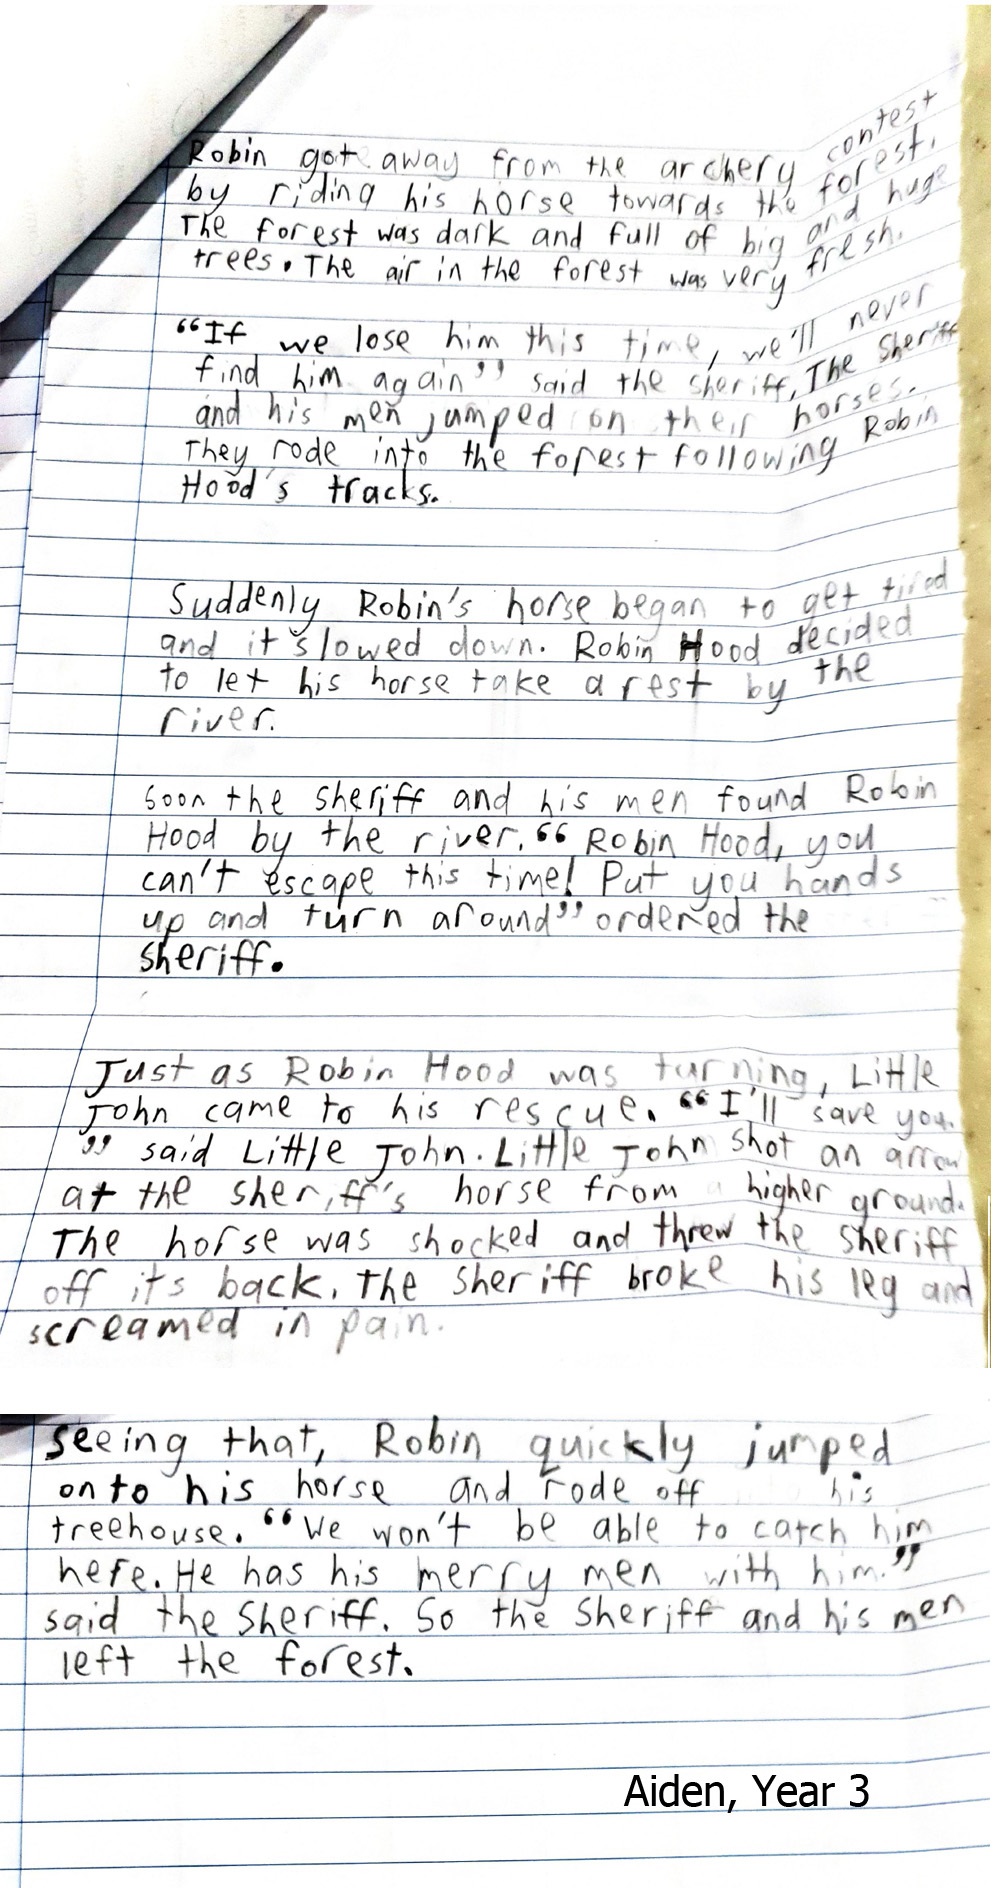 Robin got away from the archery contest
by riding his horse towards the forest.
The forest was dark and full of big and huge
trees. The air in the forest was very fresh.
“If we lose him this time, we'll never
find him again” said the sheriff. The Sheriff
and his men jumped on their horses.
They rode into the forest following Robin
Hood's tracks.
Suddenly Robin's horse began to get tired
and it slowed down. Robin Hood decided
to let his horse take a rest by the
river.
Soon the sheriff and his men found Robin
Hood by the river. “Robin Hood, you
can't escape this time! Put you hands
up and turn around” ordered the
sheriff.
Just as Robin Hood was turning, Little
John came to his rescue. “I'll save you.
” said Little John. Little John shot an arrow
at the sheriff's horse from a higher ground.
The horse was shocked and threw the sheriff
off its back. The sheriff broke his leg and
screamed in pain.
Seeing that, Robin quickly jumped
onto his horse and rode off his
treehouse. “We won't be able to catch him
here. He has his merry men with him.”
said the Sheriff. So the Sheriff and his men
left the forest.
Aiden, Year 3